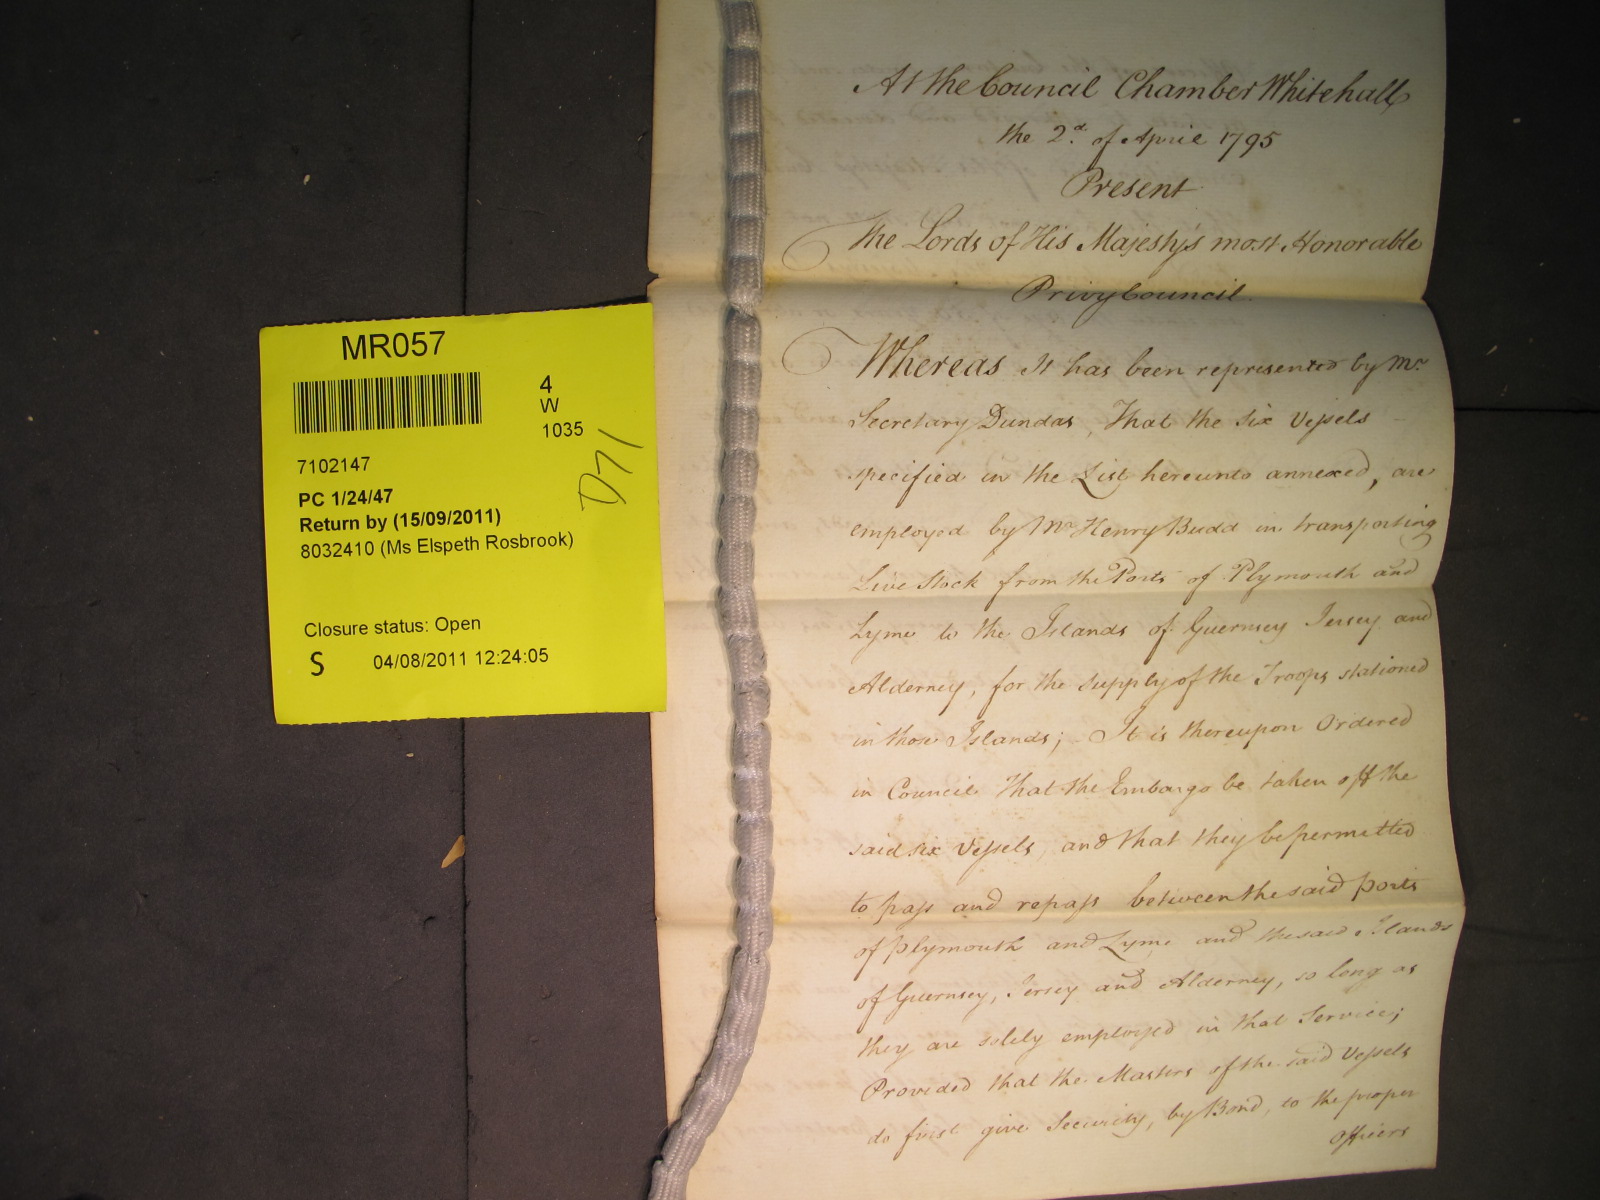 MR057
4
W
1035
D71
7102147
PC 1/24/47
Return by (15/09/2011)
8032410 (Ms Elspeth Rosbrook)
Closure status: Open
S 04/08/2011 12:24:05
At the Council Chamber Whitehall
the 2.d of April 1795
Present
The Lords of His Majesty's most Honorable
Privy Council.
Whereas It has been represented by Mr.
Secretary Dundas, That the six Vessels
specified in the List hereunto annexed, are
employed by Mr. Henry Budd in transporting
Live Stock from the Ports of Plymouth and
Lyme to the Islands of Guernsey Jersey and
Alderney, for the supply of the Troops stationed
in those Islands; It is thereupon Ordered
in Council That the Embargo be taken off the
said six Vessels, and that they be permitted
to pass and repass between the said ports
of Plymouth and Lyme and the said Islands
of Guernsey, Jersey and Alderney, so long as
they are solely employed in that Service;
Provided that the Masters of the said Vessels
do first give Security, by Bond, to the proper
officers